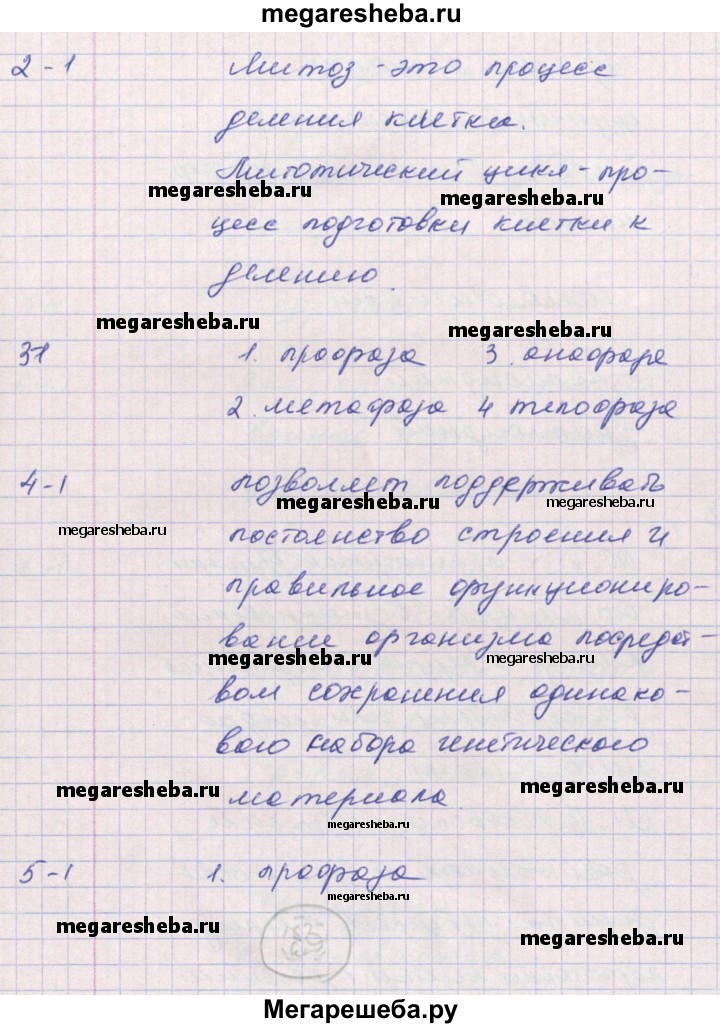 megaresheba.ru
2-1 Митоз - это процесс
деления клетки.
Митотический цикл - про-
megaresheba.ru megaresheba.ru
цесс подготовки клетки к
делению.
megaresheba.ru megaresheba.ru
31 1. профаза 3. анафаза
2. метафаза 4 телофаза
4-1 позволяет поддерживать
megaresheba.ru megaresheba.ru megaresheba.ru
постоянство строения и
правильное функциониро-
вание организма посредст-
megaresheba.ru megaresheba.ru
вом сохранения одинако-
вого набора генетического
megaresheba.ru материала megaresheba.ru
megaresheba.ru
5-1 1. профаза
megaresheba.ru
megaresheba.ru megaresheba.ru
Мегарешеба.ру